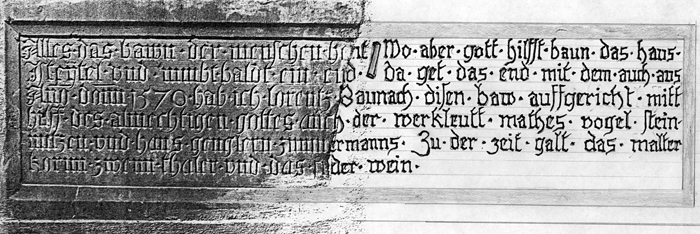 Alles · das · bawn · der · menschen · hent Wo · aber · gott · hilfft · baun · das · haus ·
Ist eytel · vnd · nimbt · baldt · ein · end · da · get · das · end · mit · dem · auch · aus
1570 · hab · ich · lorentz · Baunach · disen · baw · auffgericht · mitt
hilff · des · almechtigen · gottes · auch · der · werkleutt · mathes · vogel · stein-
metzen · vnd · hans · genslern · zimmermanns · Zu · der · zeit · galt · das · malter
korun · thaler · vnd · das · wein ·